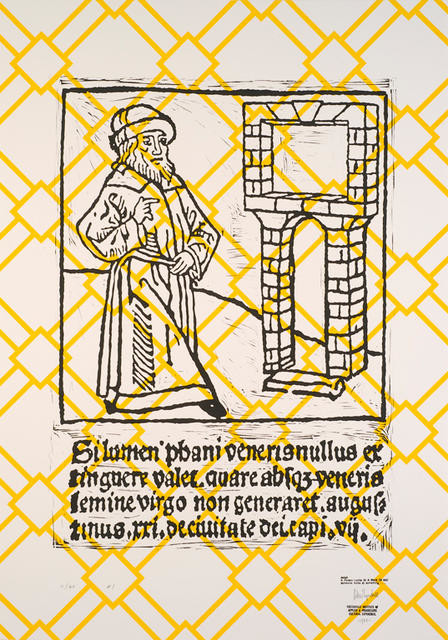 Si lumen phani veneris nullus ex
tinguere valet. quare absqꝫ veneris
semine virgo non generaret. augus⸗
tinus. xxi. de ciuitate dei. capi. vij.